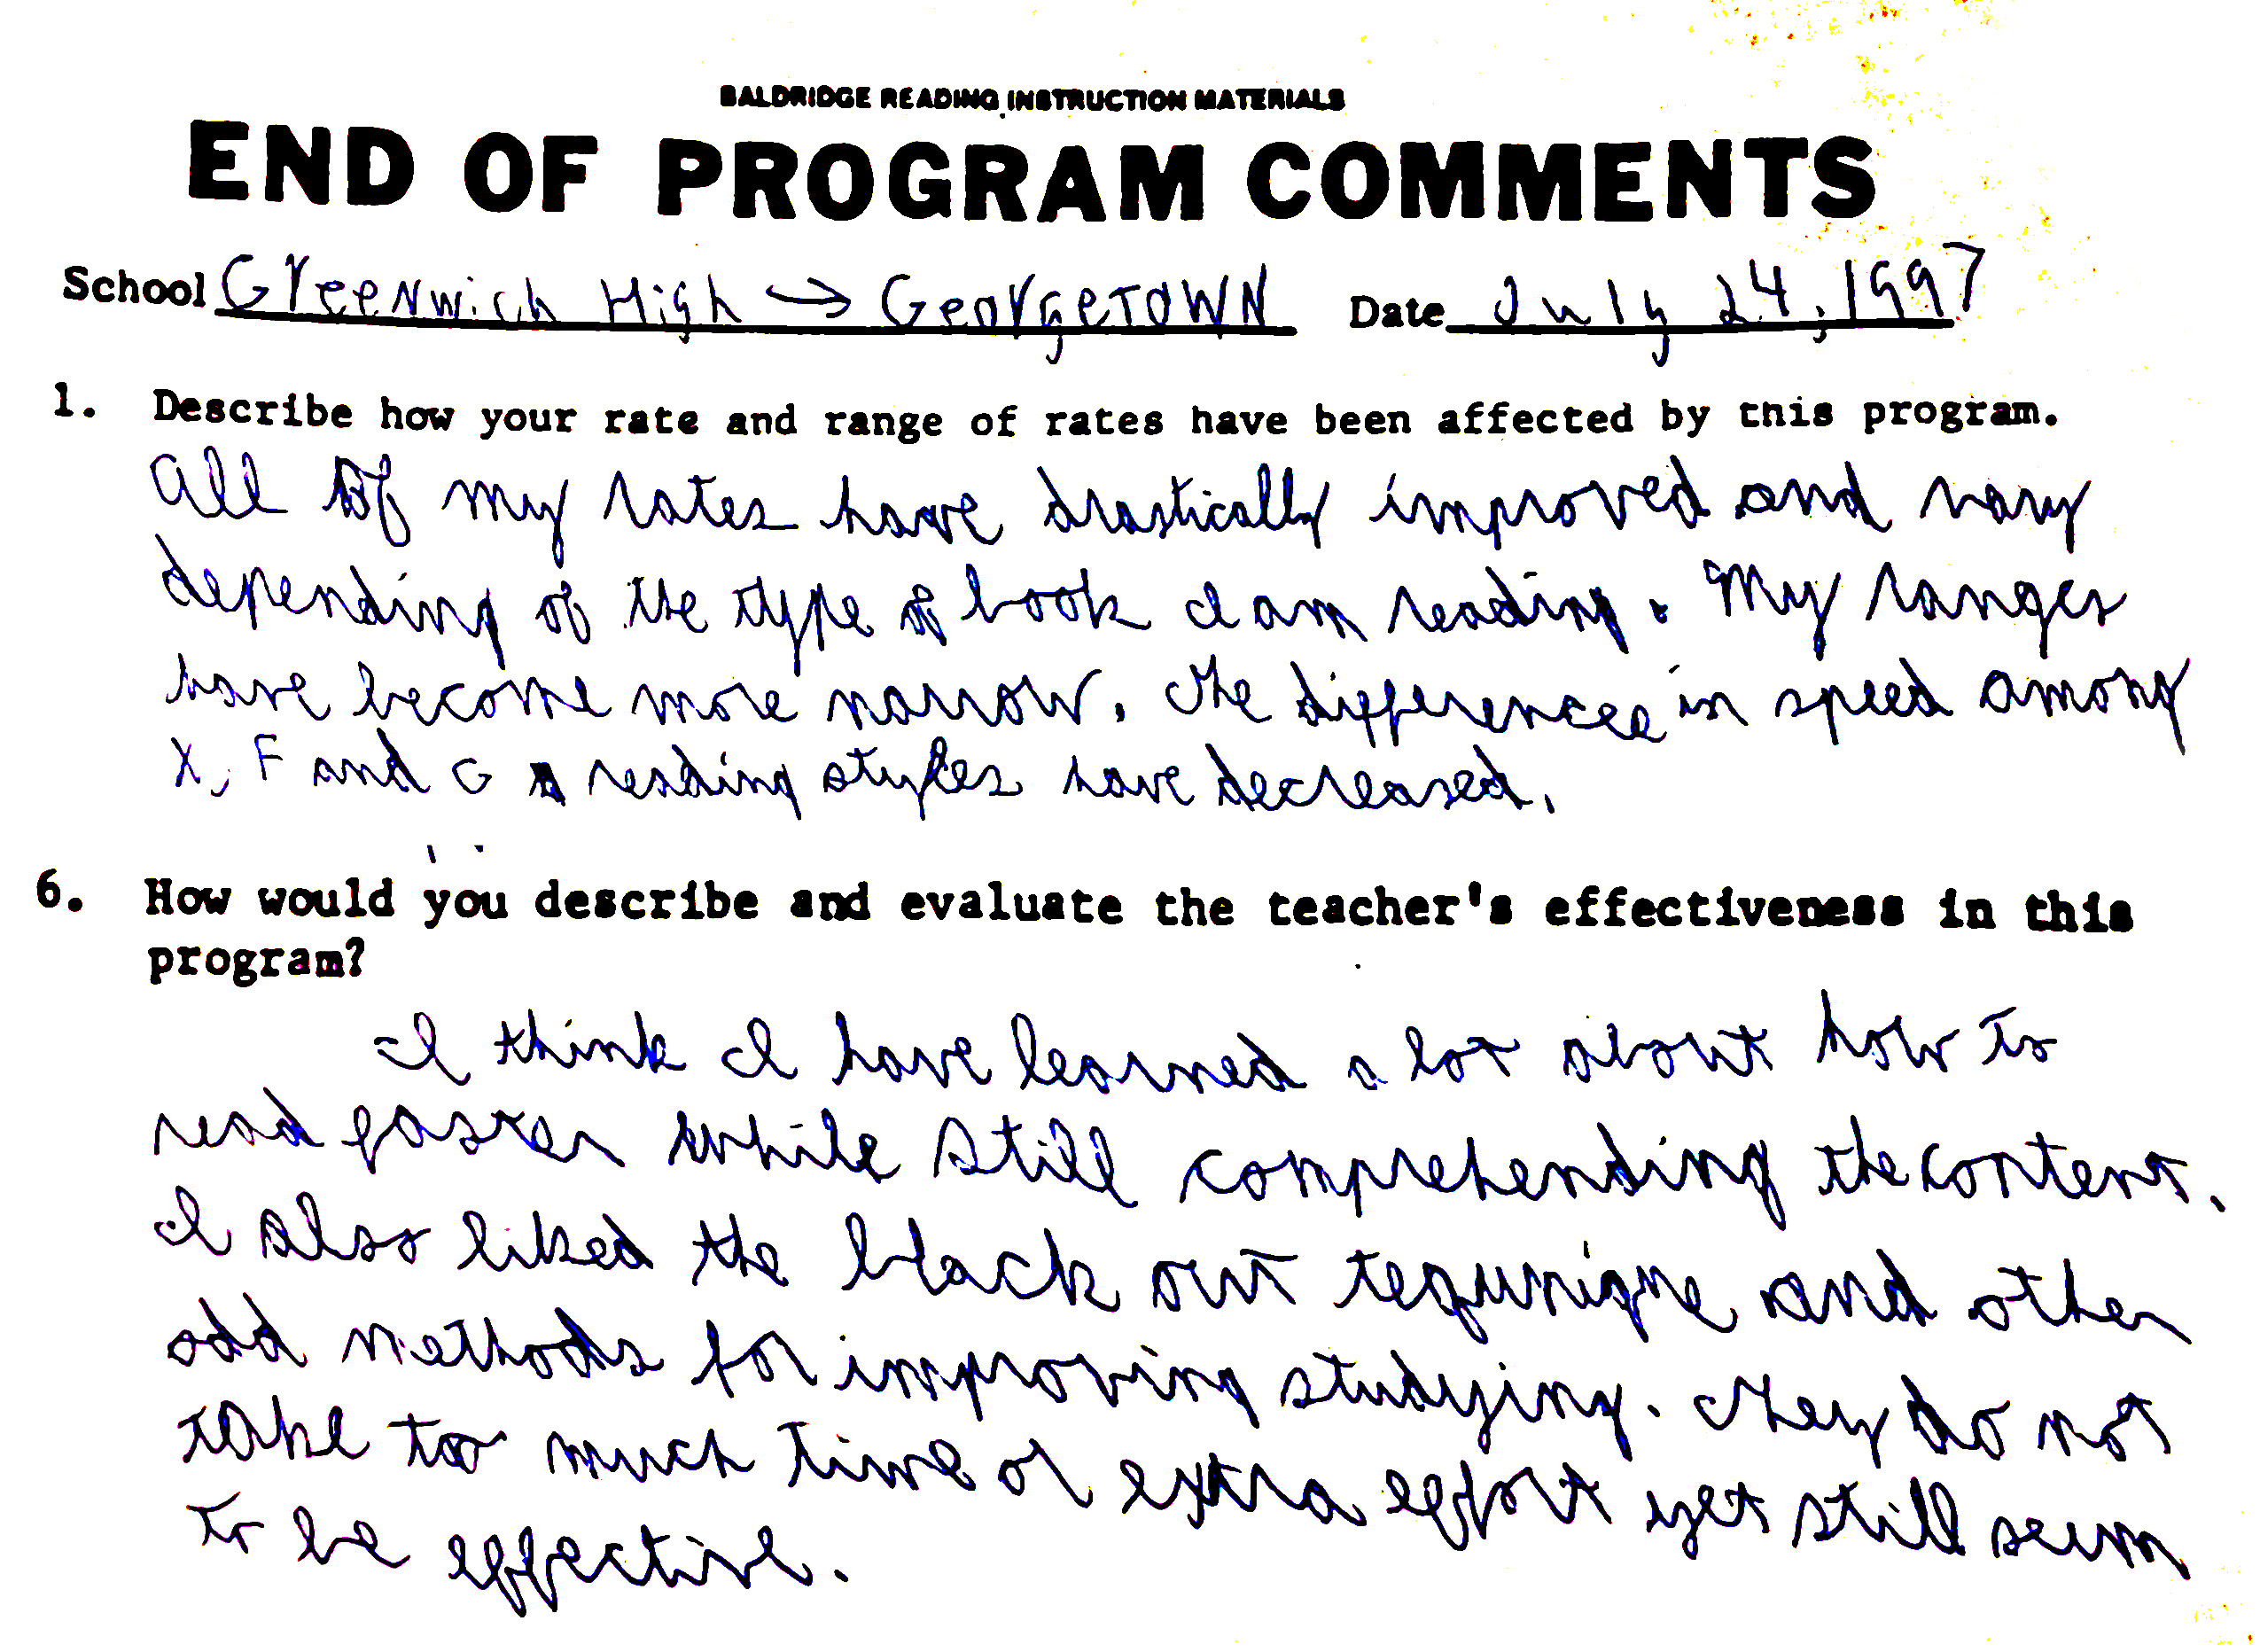 BALDRIDGE READING INSTRUCTION MATERIALS
END OF PROGRAM COMMENTS
School Greenwich High → Georgetown Date July 24, 1997
1. Describe how your rate and range of rates have been affected by this program.
All of my rates have drastically improved and vary
depending of the type of book I am reading. My ranges
have become more narrow. The differences in speed among
X, F and G reading styles have decreased.
6. How would you describe and evaluate the teacher's effectiveness in this
program?
I think I have learned a lot about how to
read faster while still comprehending the content.
I also liked the black out tequnique and other
odd methods for improving studying. They do not
take too much time or extra effort yet still seem
to be effective.